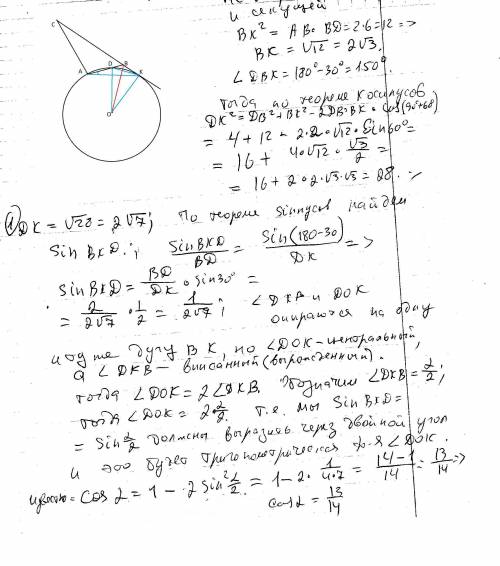 C
D
B
A
K
O
и секущей
BK² = AB · BD = 2·6 = 12 =>
BK = √12 = 2√3.
∠DBK = 180° - 30° = 150°
Тогда по теореме косинусов
DK² = DB² + BK² - 2DB·BK · cos(90+60)
= 4 + 12 - 2·2·√12 · sin60° =
= 16 + 4·√12 · √3/2 =
= 16 + 2·2·√3·√3 = 28.
1) DK = √28 = 2√7; По теореме синусов найдем
sin BKD ; sin BKD / BD = sin(180-30) / DK =>
sin BKD = BD/DK · sin 30° =
= 2/2√7 · 1/2 = 1/2√7 ; ∠DKA и DOK
опираются на одну
и ту же дугу BK, но ∠DOK - центральный,
а ∠DKB - вписанный (вырожденный).
тогда ∠DOK = 2∠DKB. Обозначим ∠DKB = α/2;
тогда ∠DOK = 2·α/2. т.е. мы sin BKD =
= sin α/2 должны выразить через двойной угол
и это будет тригонометрическая ф-я ∠DOK.
cos α = 1 - 2 sin² α/2 = 1 - 2 · 1/4·7 = 14-1/14 = 13/14 =>
cos α = 13/14